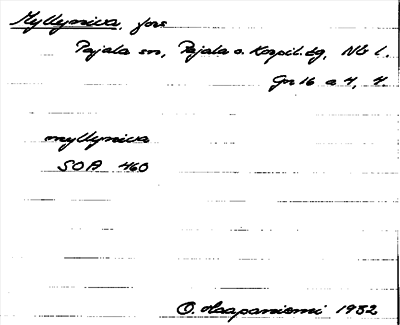 Myllyniva, fors
Pajala sn, Pajala o. Korpil. tg, Nb l.
Gr 16 a 4, 4
myllyniva
SOA 460
O. Haapaniemi 1932